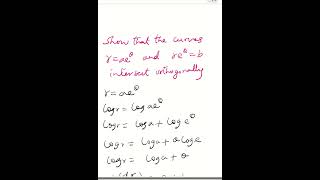 Show that the curves
r=ae^θ and re^θ=b
intersect orthogonally
r=ae^θ
logr=logae^θ
logr= loga+loge^θ
logr= loga+θloge
logr= loga+θ